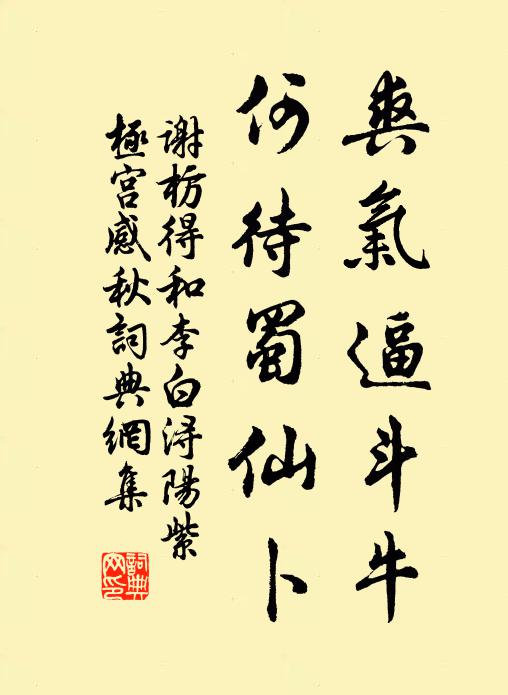 爽氣逼斗牛
何待蜀仙卜
谢枋得和李白浔陽紫
極宫感秋詞典網集
詞典网印